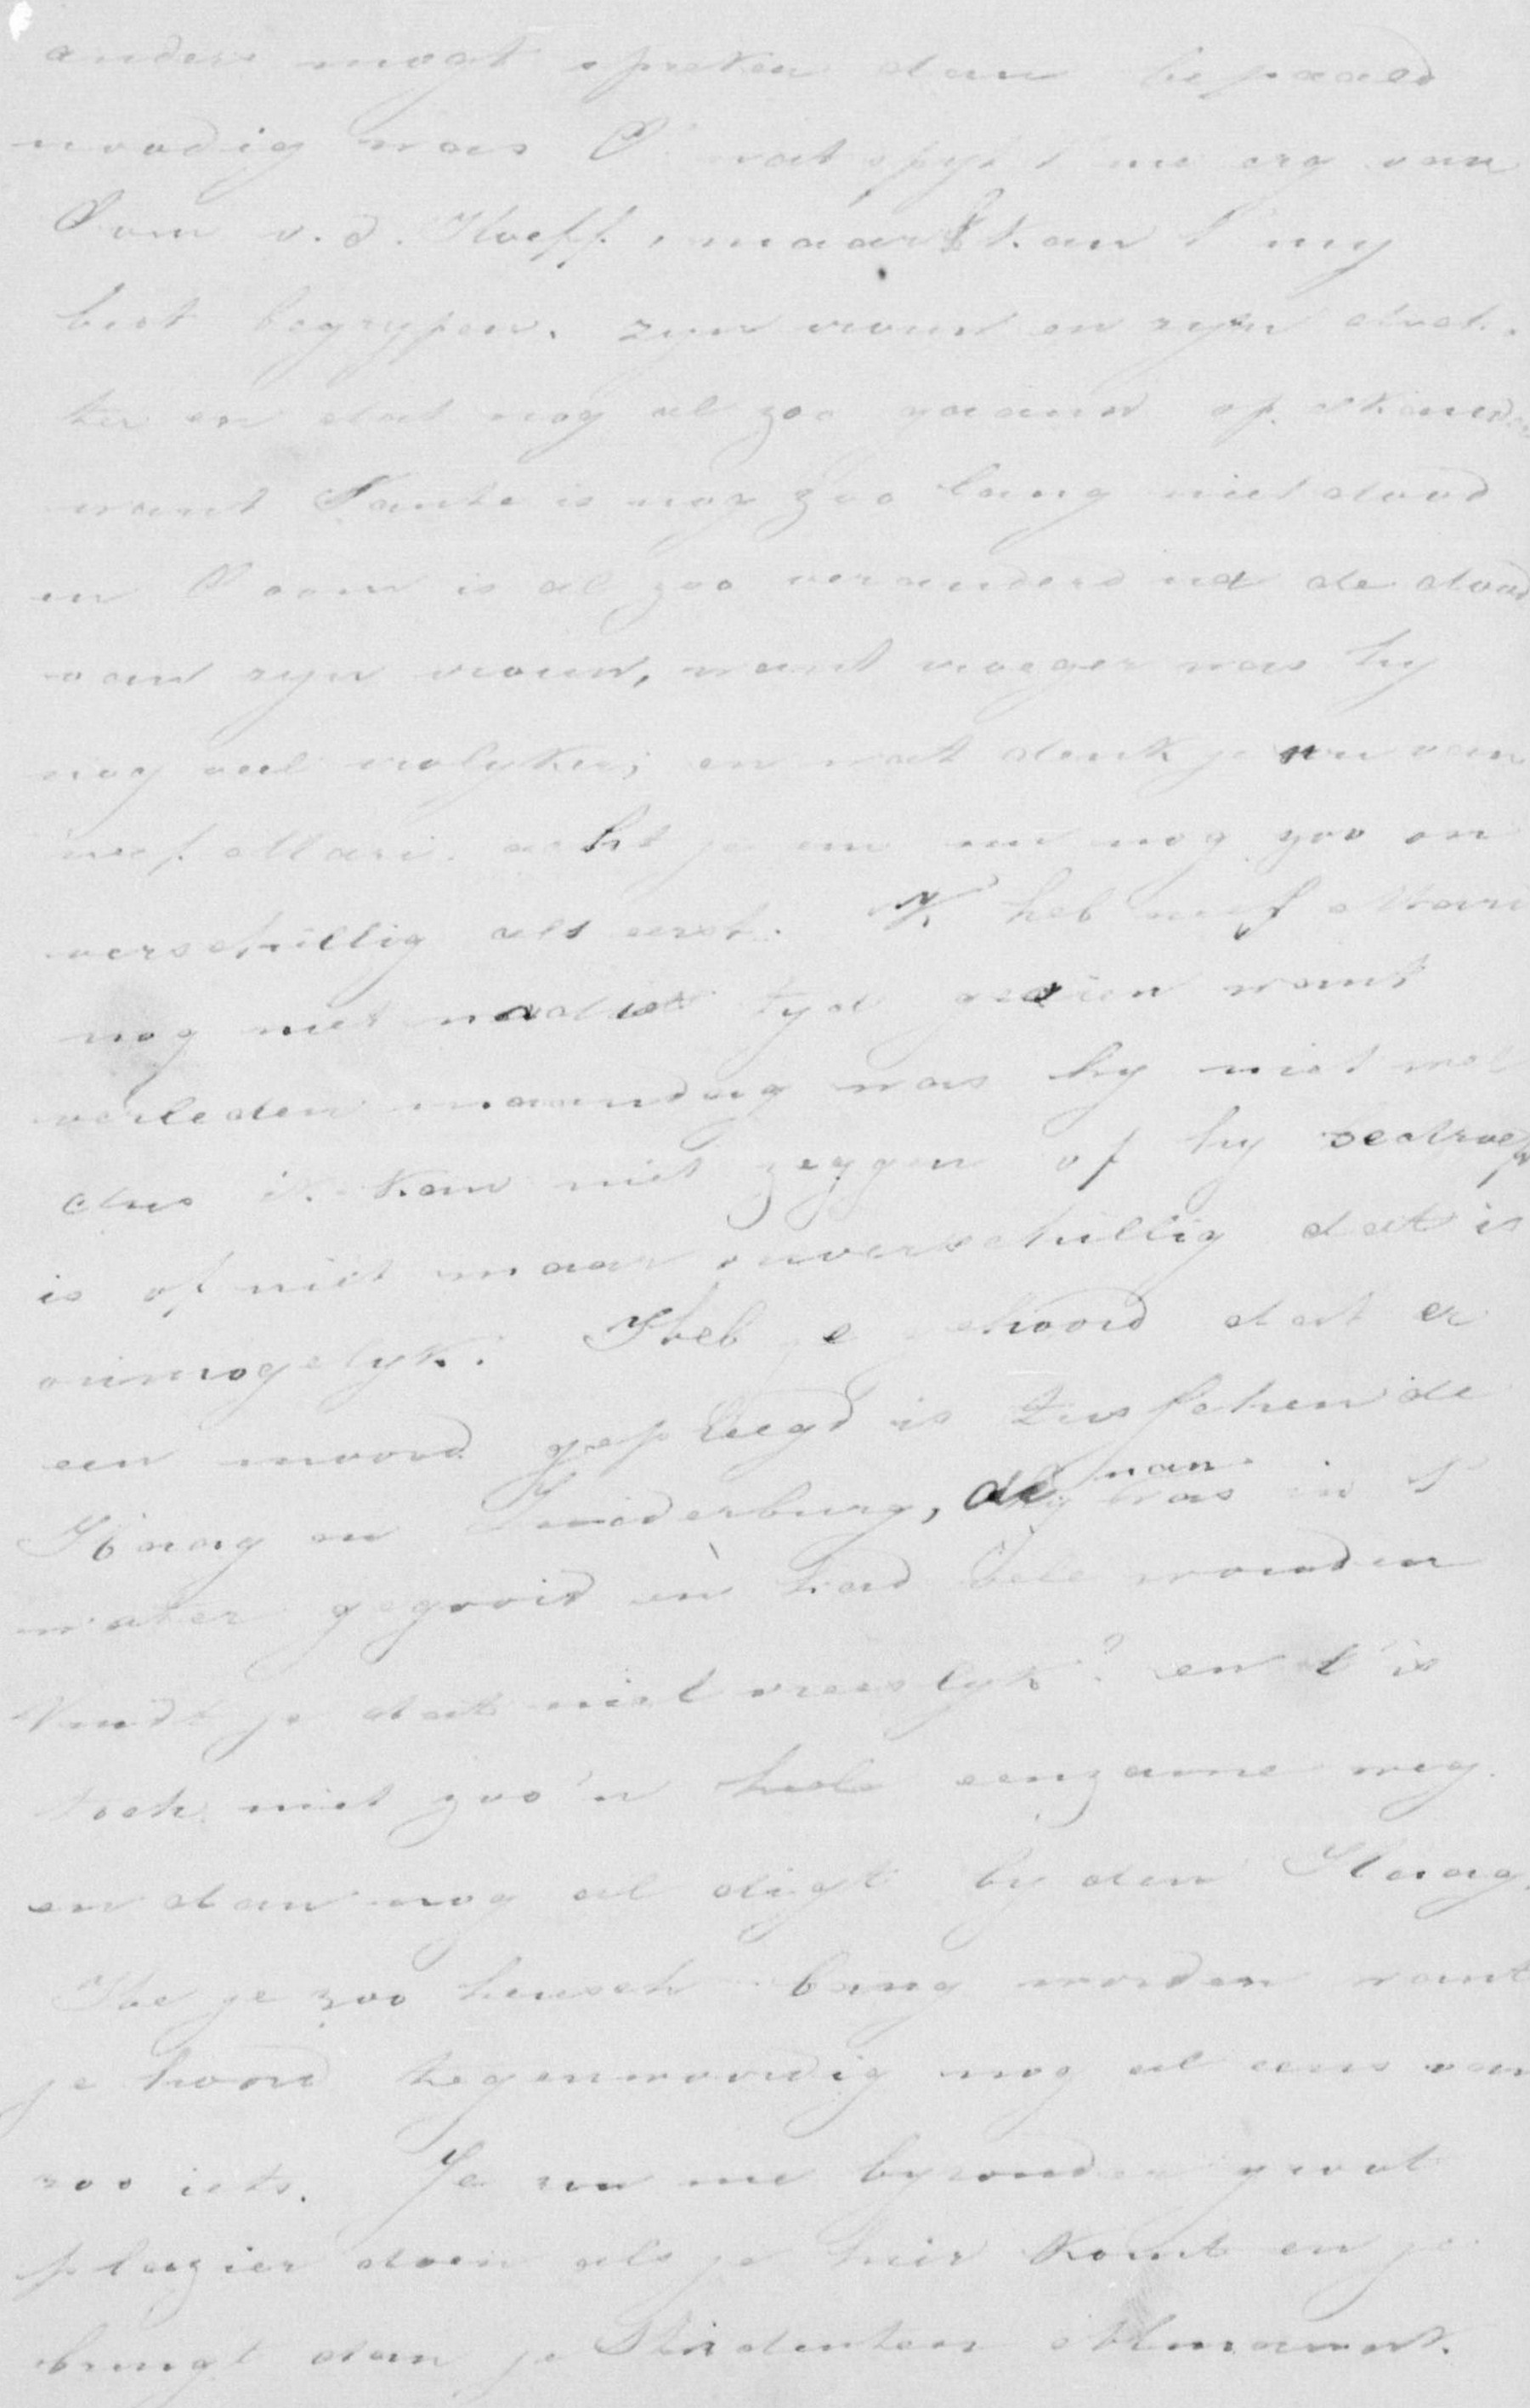 anders mogt spreken dan bepaald
noodig was O wat spijt 't me erg van
Oom v.d. Hoeff, maar k kan 't my
best begrypen. zyn vrouw en zyn doch-
ter en dat nog al zoo gaauw op elkander
want Tante is nog zoo lang niet dood
en Oom is al zoo veranderd na de dood
van zyn vrouw, want vroeger was hy
nog veel vrolyker; en wat denk je nu van
neef Mari. acht je em nu nog zoo on
verschillig als eerst. Ik heb neef Mari
nog niet na die tyd gezien want
verleden maandag was hy niet wel
dus ik kan niet zeggen of hy bedroefd
is of niet maar onverschillig dat is
onmogelyk. Heb je gehoord dat er
een moord gepleegd is tusschen de
Haag en de man was in 't
water gegooid en had vele wonden
Vindt je dat niet vreeslyk? en 't is
toch niet zoo'n hele eenzame weg.
en dan nog al digt by den Haag.
je zoo heusch bang worden want
je hoord tegenwoordig nog al eens van
zoo iets. Je zou me byzonder groot
plezier doen als je hier komt en je
brengt dan je Studenten Almanak.